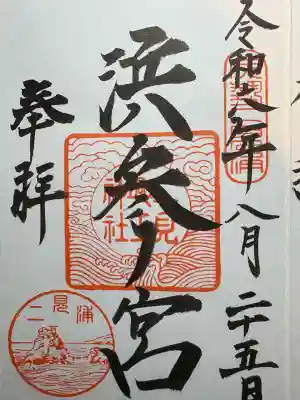 令和六年八月二十五日
浜参宮
奉拝
二見興玉神社
二見浦